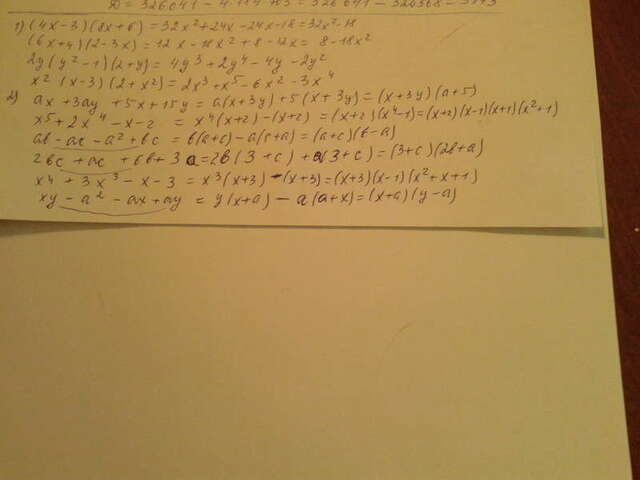 D = 326041 - 4·114·703 = 326041 - 320568 = 5473
1) (4x-3)(8x+6) = 32x²+24x-24x-18=32x²-18
(6x+4)(2-3x) = 12x-18x²+8-12x = 8-18x²
2y(y²-1)(2+y) = 4y³+2y⁴-4y-2y²
x² (x-3)(2+x²) = 2x³+x⁵-6x²-3x⁴
2) ax+3ay+5x+15y = a(x+3y)+5(x+3y)=(x+3y)(a+5)
x⁵+2x⁴-x-2 = x⁴(x+2)-(x+2) = (x+2)(x⁴-1)=(x+2)(x-1)(x+1)(x²+1)
ab-ac-a²+bc = b(a+c)-a(c+a) = (a+c)(b-a)
2bc+ac+6b+3a=2b(3+c)+a(3+c)=(3+c)(2b+a)
x⁴+3x³-x-3 = x³(x+3)-(x+3)=(x+3)(x-1)(x²+x+1)
xy-a²-ax+ay = y(x+a)-a(a+x)=(x+a)(y-a)